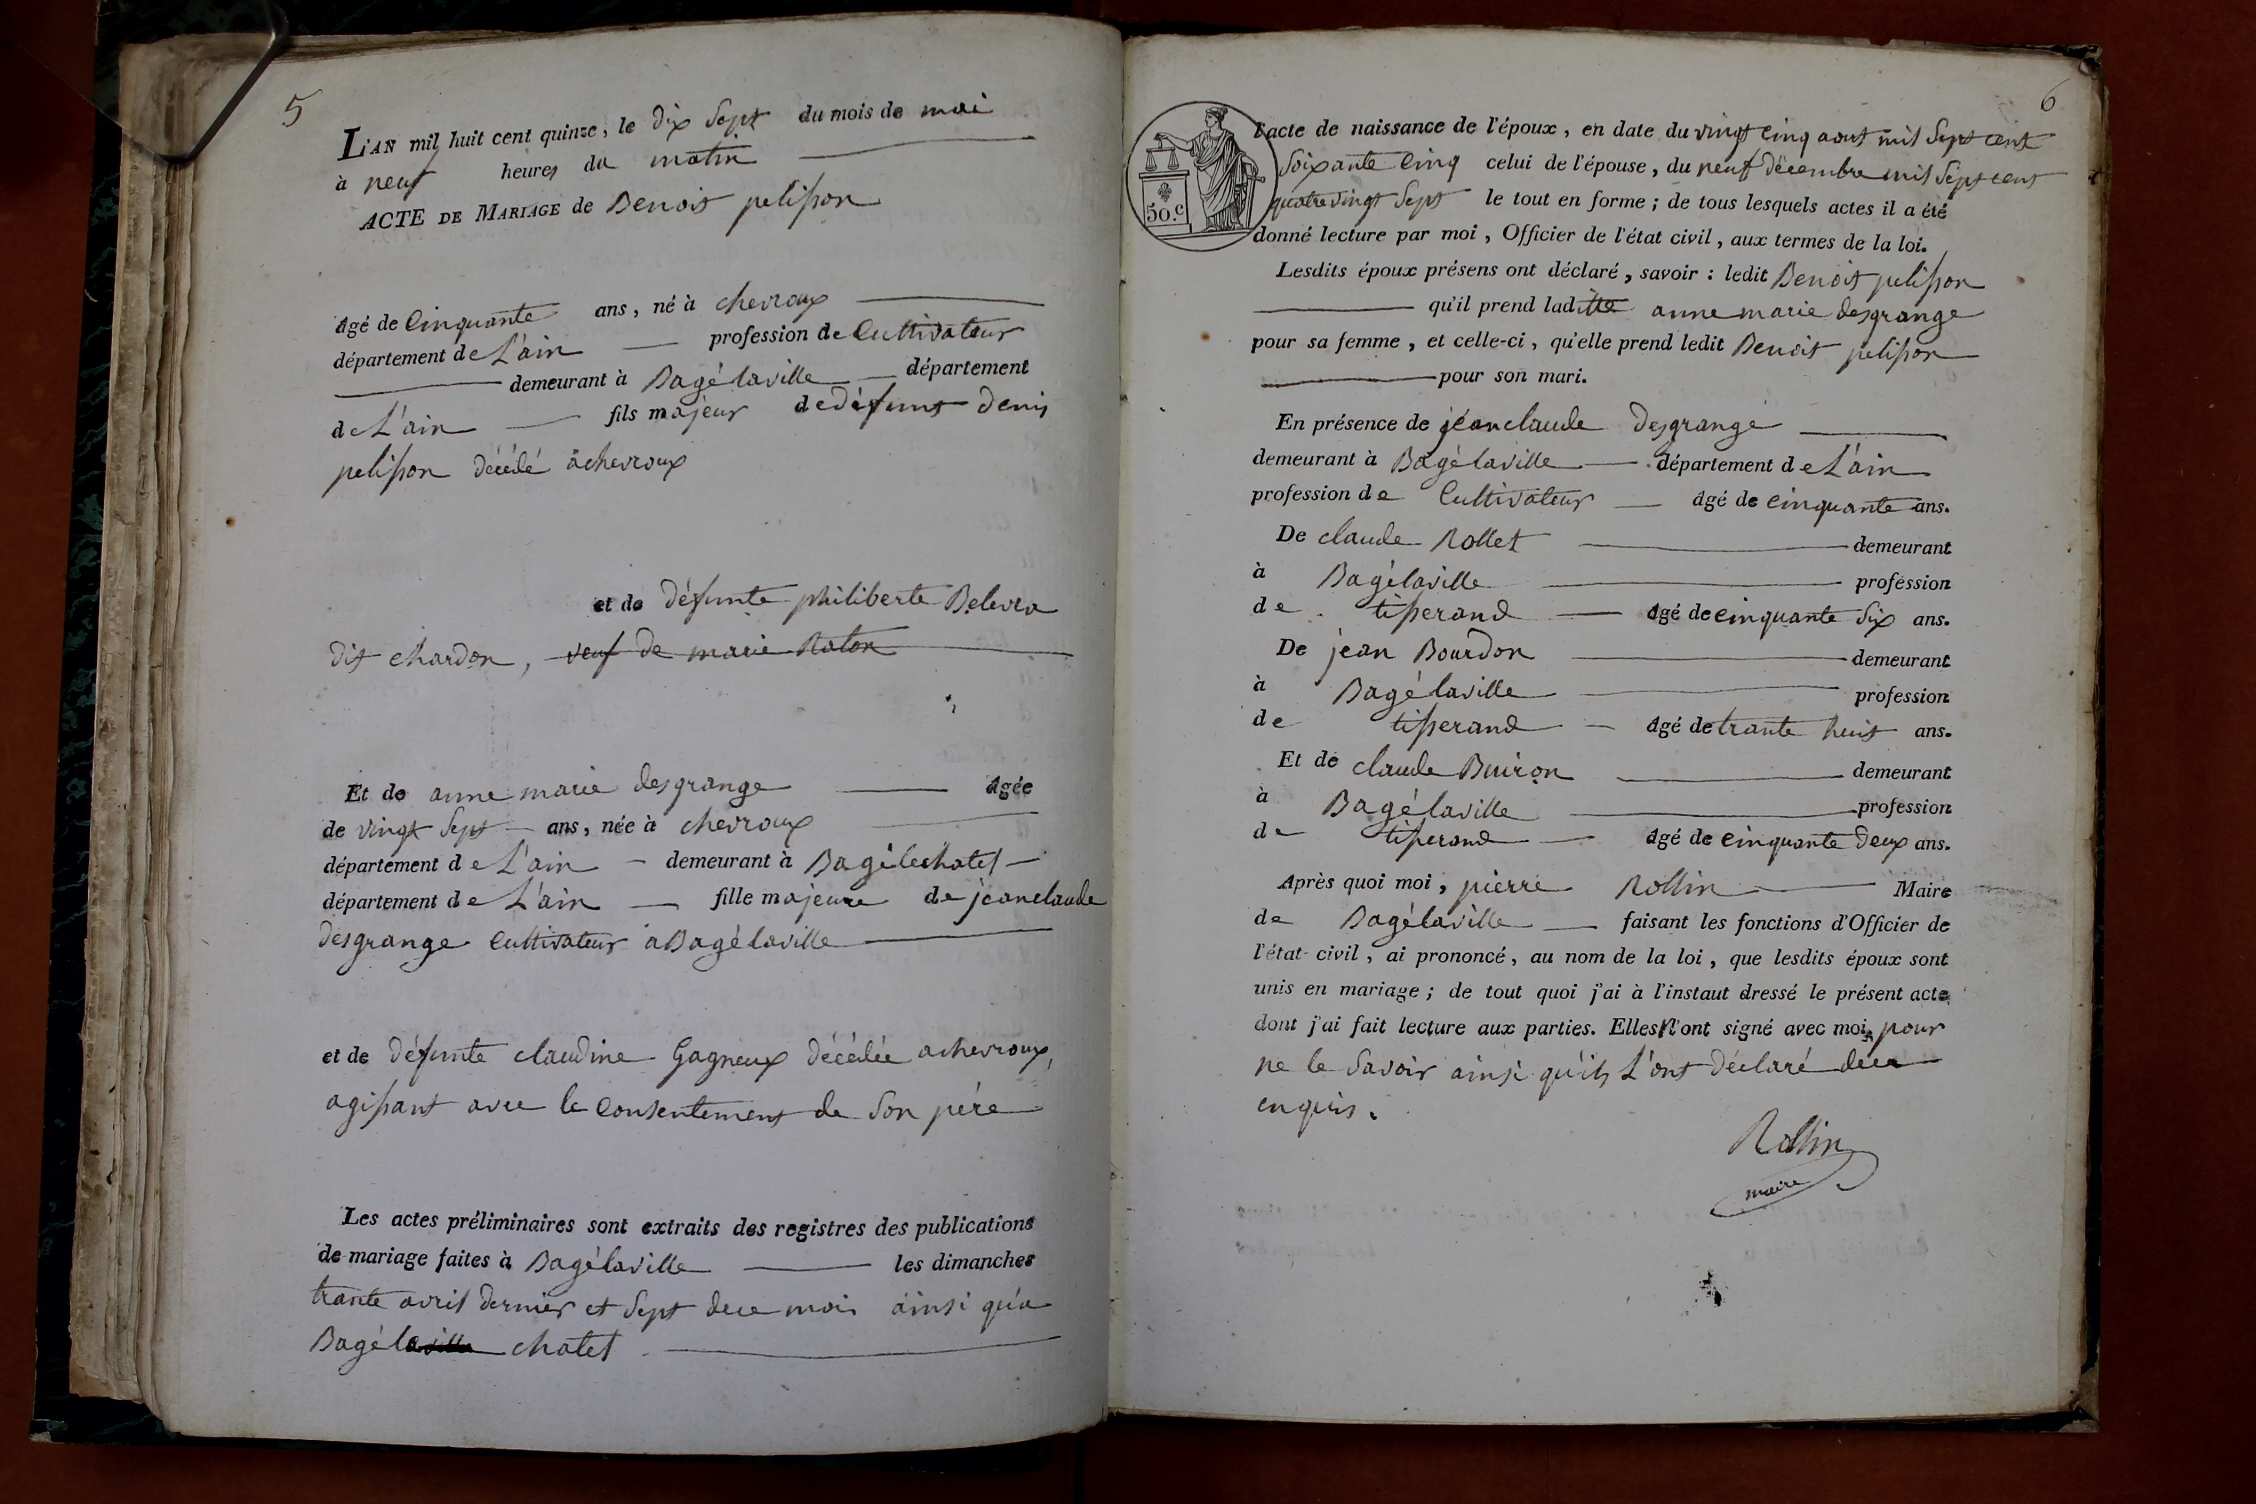 5
L'AN mil huit cent quinze, le dix Sept du mois de mai
à neuf heures du matin
ACTE DE MARIAGE de Benoit pelisson
âgé de Cinquante ans, né à chevroux
département de L'ain profession de Cultivateur
demeurant à Bagélaville département
de L'ain fils majeur de défunt denis
pelisson décédé àchevroux
et de défunte philiberte Belevra
dit chardon, veuf de marie Raton
Et de anne marie desgrange âgée
de vingt Sept ans, née à chevroux
département de L'ain demeurant à Bagélechatel
département de L'ain fille majeure de jeanclaude
desgrange Cultivateur aBagélaville
et de défunte claudine Gagneux décédée achevroux,
agissant avec le Consentement de Son père
Les actes préliminaires sont extraits des registres des publications
de mariage faites à Bagélaville les dimanches
trante avril dernier et Sept dece mois ainsi qu'a
Bagélaville chatel
6
l'acte de naissance de l'époux, en date du vingt Cinq aout mil Sept cent
Soixante Cinq celui de l'épouse, du neuf décembre mil Sept cent
quatrevingt Sept le tout en forme; de tous lesquels actes il a été
50.c
donné lecture par moi, Officier de l'état civil, aux termes de la loi.
Lesdits époux présens ont déclaré, savoir: ledit Benoit pelisson
qu'il prend laditte anne marie desgrange
pour sa femme, et celle-ci, qu'elle prend ledit Benoit pelisson
pour son mari.
En présence de jéanclaude desgrange
demeurant à Bagélaville département de L'ain
profession de Cultivateur âgé de cinquante ans.
De claude Rollet demeurant
à Bagélaville profession
de tisserand âgé de cinquante Six ans.
De jean Bourdon demeurant
à Bagélaville profession
de tisserand âgé de trante huit ans.
Et de claude Buiron demeurant
à Bagélaville profession
de tisserand âgé de cinquante deux ans.
Après quoi moi, pierre Rollin Maire
de Bagélaville faisant les fonctions d'Officier de
l'état-civil, ai prononcé, au nom de la loi, que lesdits époux sont
unis en mariage; de tout quoi j'ai à l'instaut dressé le présent acte
dont j'ai fait lecture aux parties. Elles n'ont signé avec moi, pour
ne le Savoir ainsi qu'ils L'ont déclaré dece
enquis.
Rollin
maire